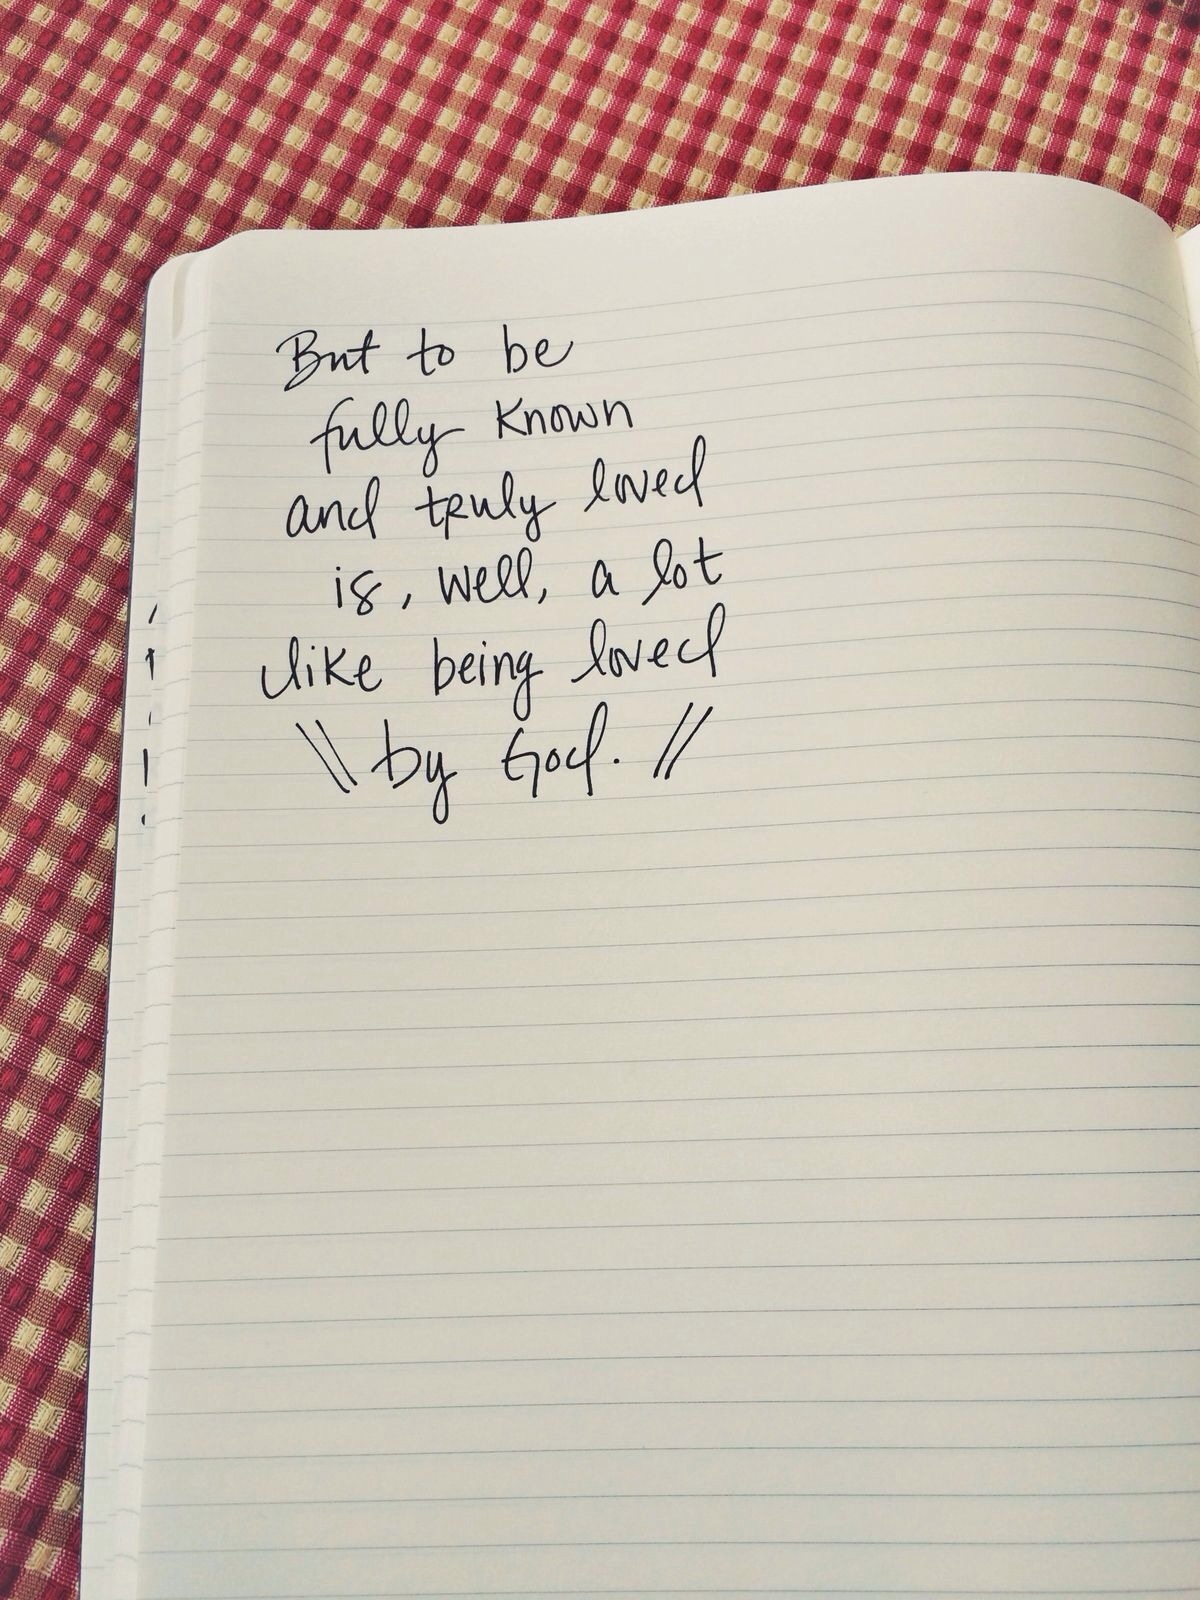 But to be
fully known
and truly loved
is, well, a lot
like being loved
\\ by God. //